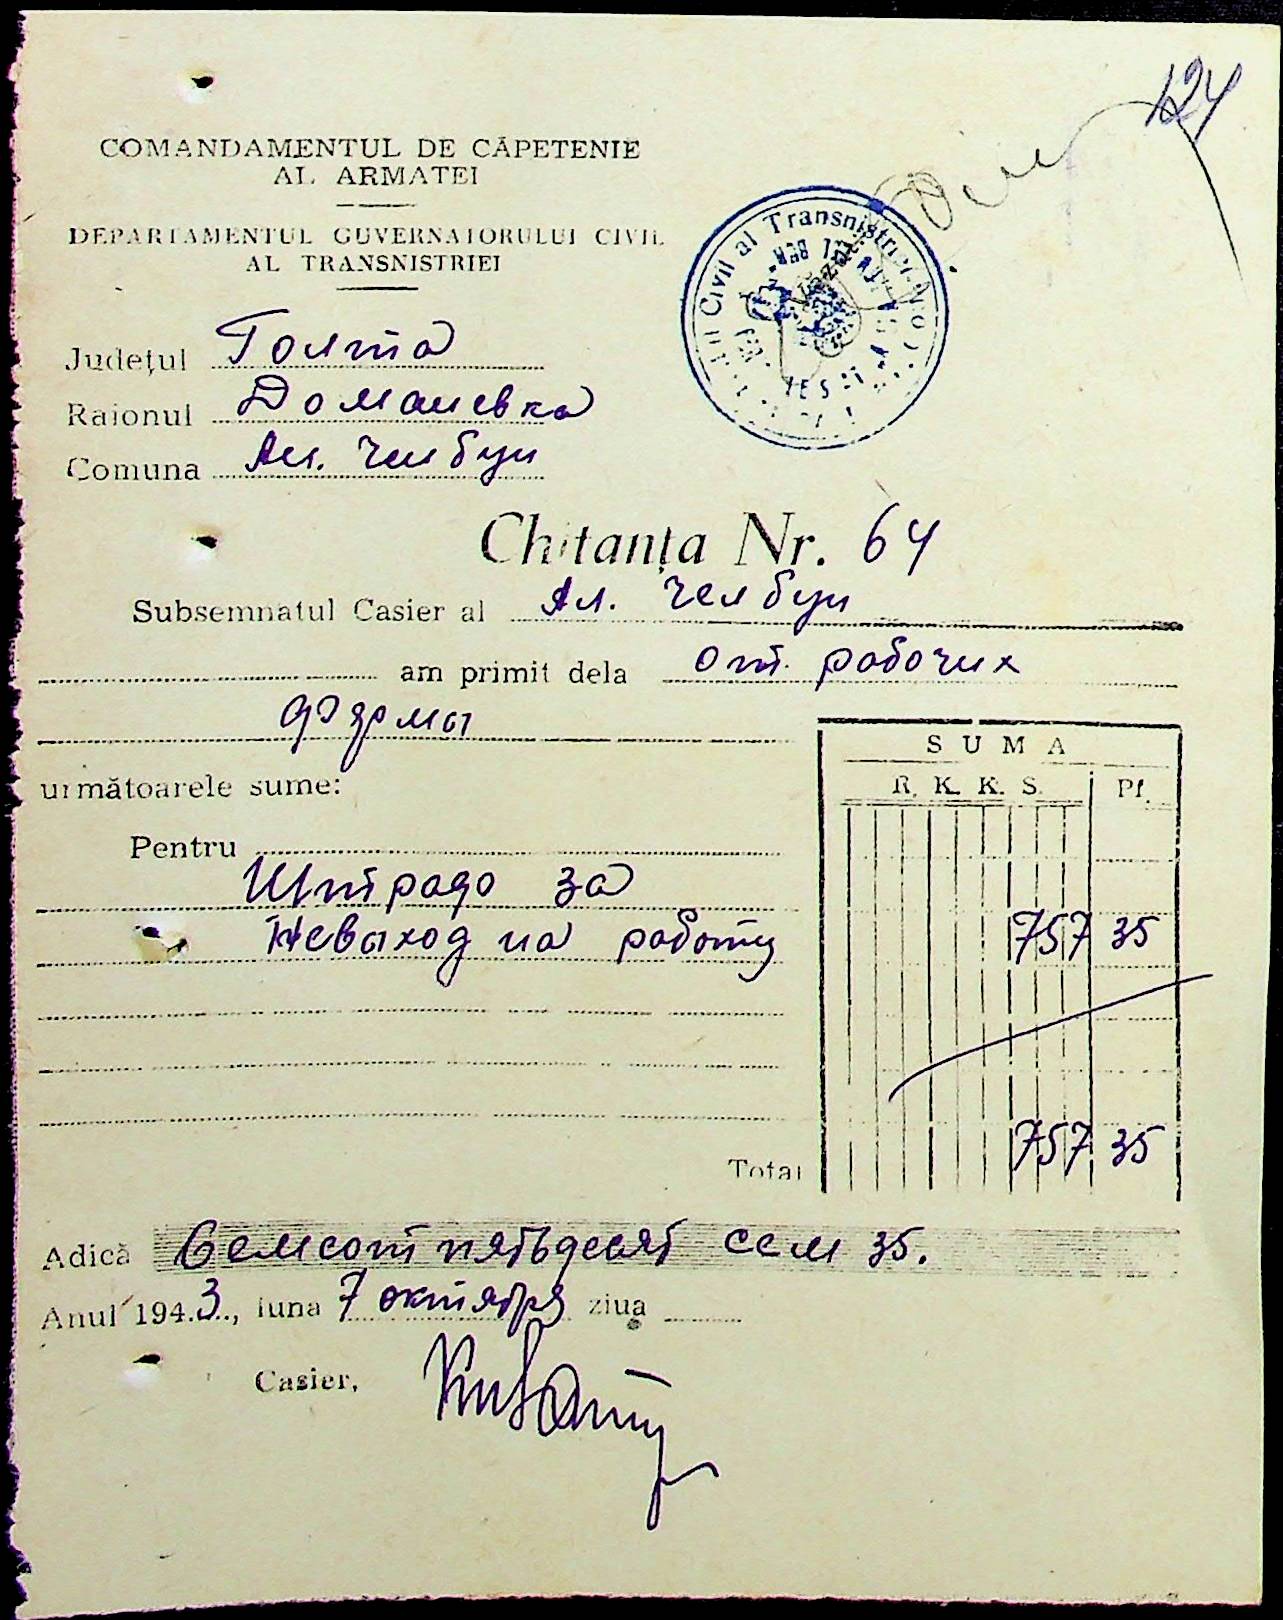 124
COMANDAMENTUL DE CĂPETENIE
AL ARMATEI
DEPARTAMENTUL GUVERNATORULUI CIVIL
AL TRANSNISTRIEI
Județul Голта
Raionul Доманевка
Comuna Ал. Челбун
Civil al Transnistriei
Chitanța Nr. 64
Subsemnatul Casier al Ал. Челбун
am primit dela От. рабочих
фермы
următoarele sume:
SUMA
R. K. K. S. Pf.
Pentru
Штрафо за
Невыход на работу 757 35
Total 757 35
Adică Семсот пятьдесят сем 35.
Anul 1943., luna 7 октября ziua
Casier,